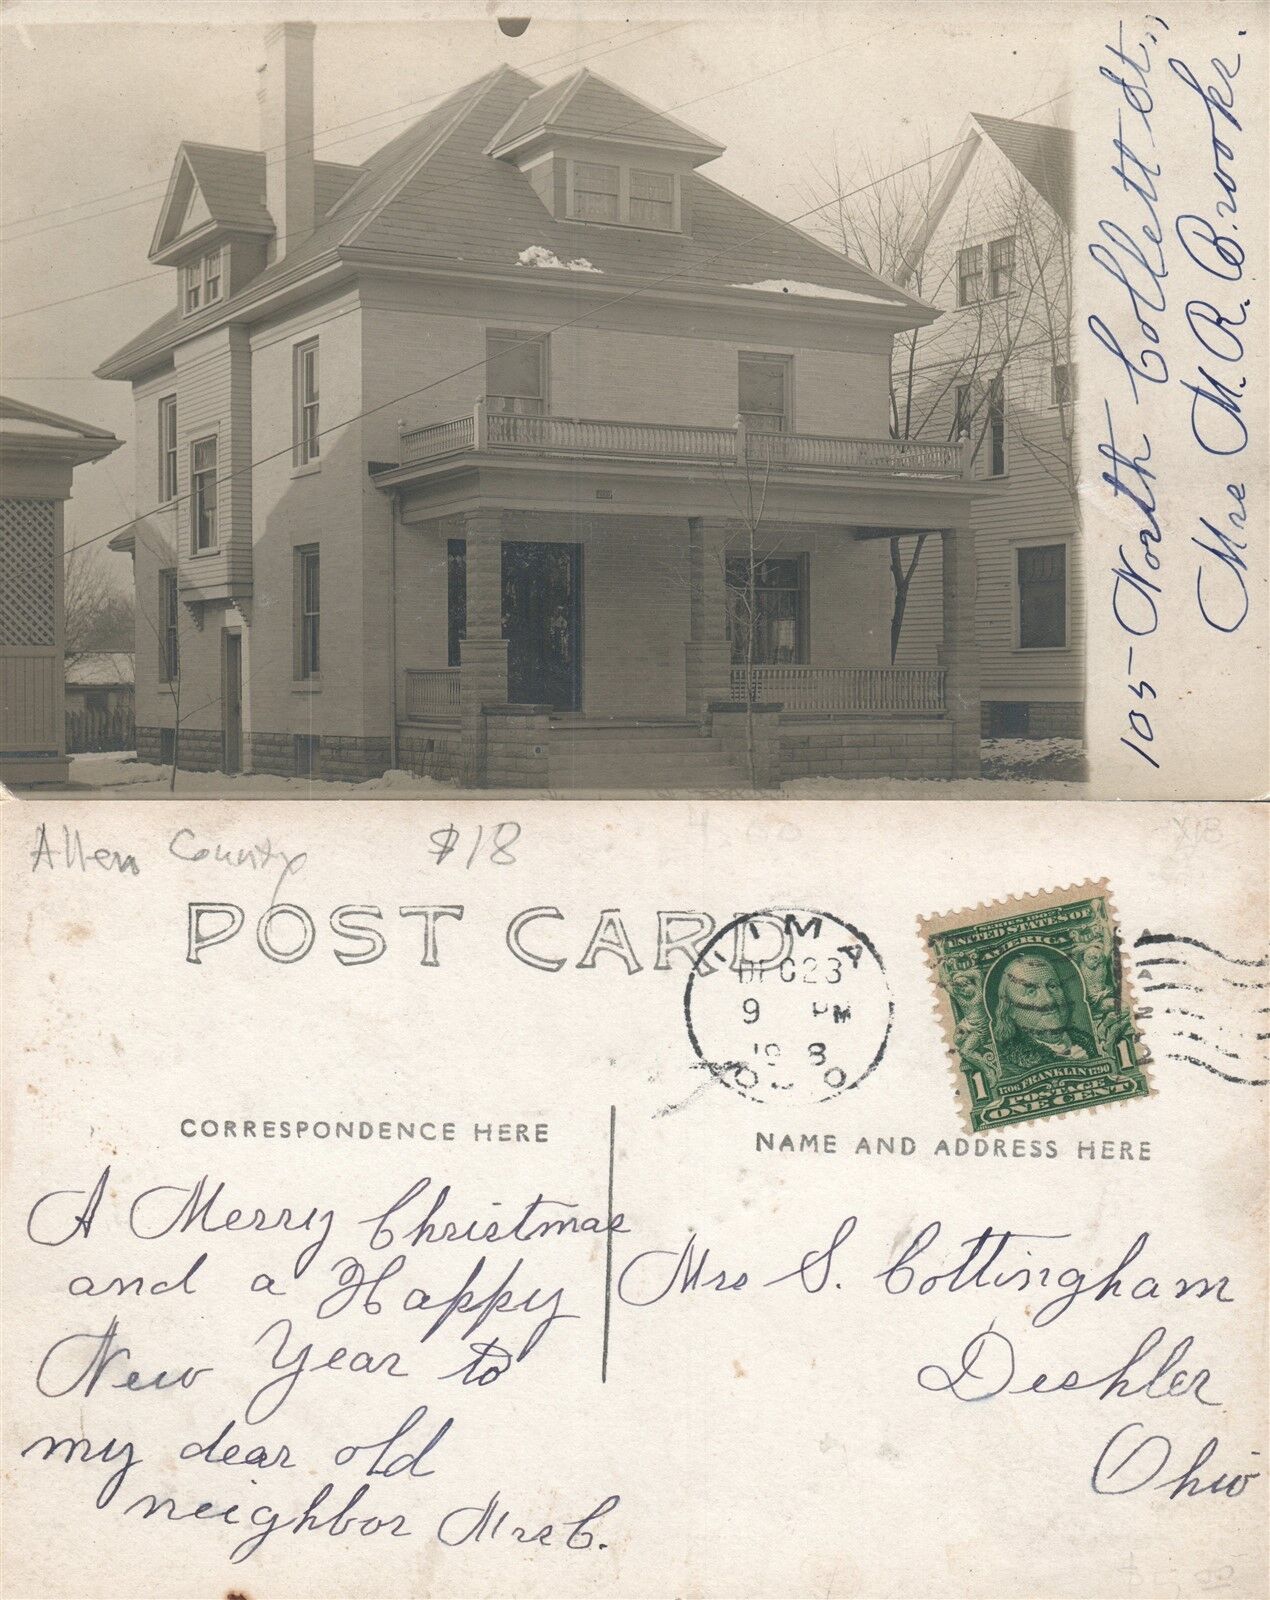 105 North Collett St.,
Mrs M. R. Brooks.
Allen County $18
POST CARD
LIMA
DEC 23
9 PM
OHIO
SERIES 1902
UNITED STATES OF
AMERICA
1706 FRANKLIN 1790
1 1
POSTAGE
ONE CENT
CORRESPONDENCE HERE
NAME AND ADDRESS HERE
A Merry Christmas
and a Happy
New Year to
my dear old
neighbor Mrs C.
Mrs S. Cottingham
Deshler
Ohio